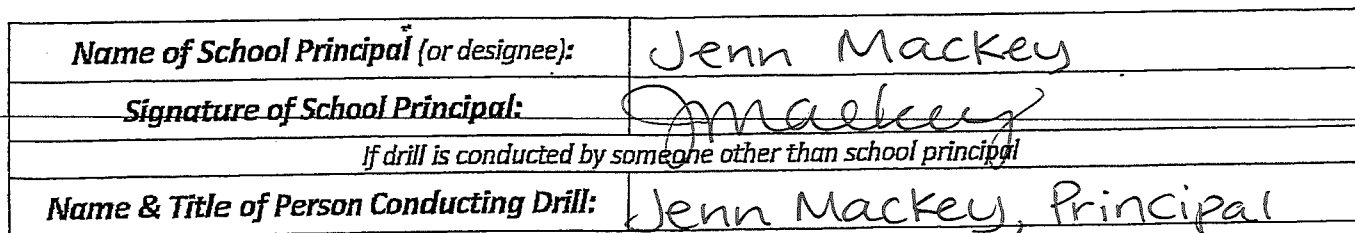 Name of School Principal (or designee): Jenn Mackey
Signature of School Principal: JMackey
If drill is conducted by someone other than school principal
Name & Title of Person Conducting Drill: Jenn Mackey, Principal